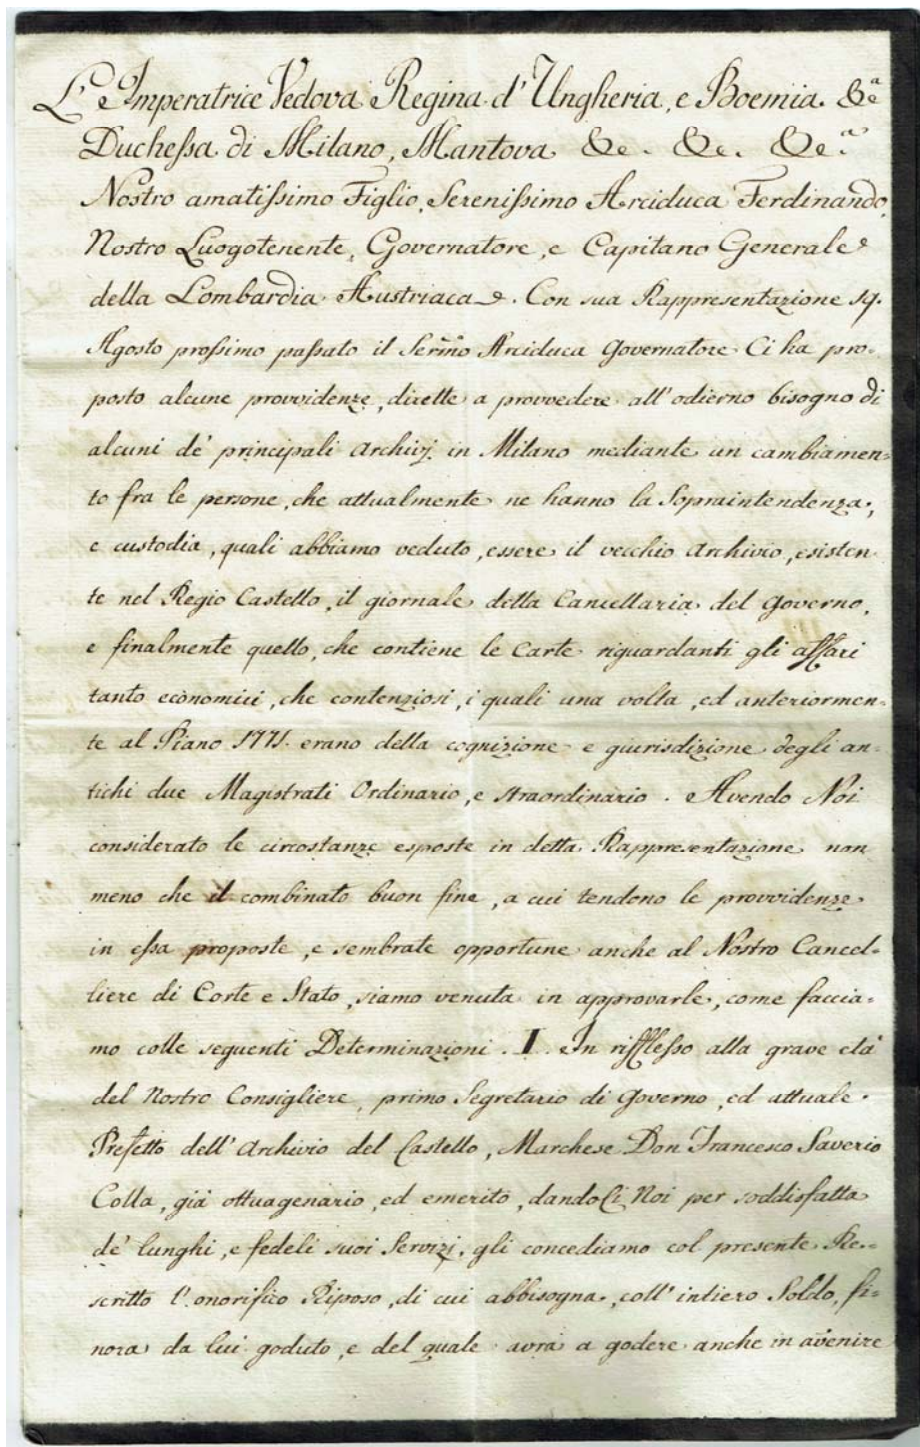 L'Imperatrice Vedova Regina d'Ungheria, e Boemia. &cª
Duchessa di Milano, Mantova &c. &c. &cª.
Nostro amatissimo Figlio, Serenissimo Arciduca Ferdinando,
Nostro Luogotenente, Governatore, e Capitano Generale
della Lombardia Austriaca. Con sua Rappresentazione 19.
Agosto prossimo passato il Sermo Arciduca Governatore Ci ha pro-
posto alcune provvidenze, dirette a provvedere all'odierno bisogno di
alcuni de' principali Archivj in Milano mediante un cambiamen-
to fra le persone, che attualmente ne hanno la Sopraintendenza,
e custodia, quali abbiamo veduto, essere il vecchio Archivio, esisten-
te nel Regio Castello, il giornale della Cancellaria del Governo,
e finalmente quello, che contiene le Carte riguardanti gli affari
tanto economici, che contenziosi, i quali una volta, ed anteriormen-
te al Piano 1771. erano della cognizione e giurisdizione degli an-
tichi due Magistrati Ordinario, e straordinario. Avendo Noi
considerato le circostanze esposte in detta Rappresentazione non
meno che il combinato buon fine, a cui tendono le provvidenze
in essa proposte, e sembrate opportune anche al Nostro Cancel-
liere di Corte e Stato, siamo venuta in approvarle, come faccia-
mo colle seguenti Determinazioni. I. In rifflesso alla grave età
del Nostro Consigliere, primo Segretario di Governo, ed attuale
Prefetto dell'Archivio del Castello, Marchese Don Francesco Saverio
Colla, già ottuagenario, ed emerito, dandoCi Noi per soddisfatta
de' lunghi, e fedeli suoi Servizj, gli concediamo col presente Re-
scritto l'onorifico Riposo, di cui abbisogna, coll'intiero Soldo, fi-
nora da lui goduto, e del quale avrà a godere anche in avenire